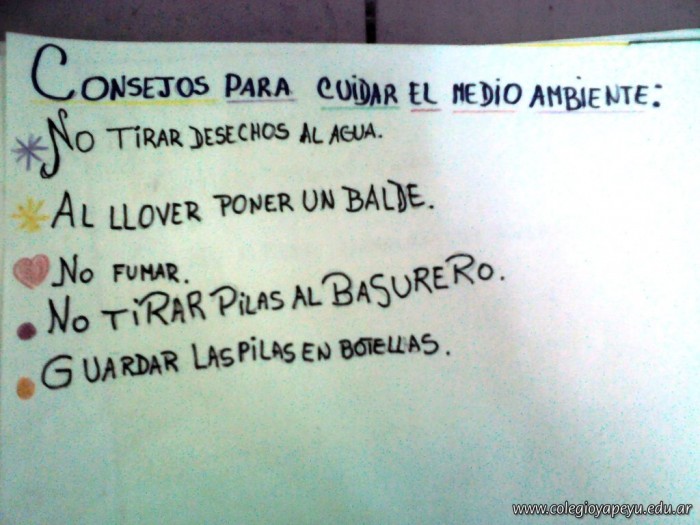 CONSEJOS PARA CUIDAR EL MEDIO AMBIENTE:
NO TIRAR DESECHOS AL AGUA.
AL LLOVER PONER UN BALDE.
NO FUMAR.
NO TIRAR PILAS AL BASURERO.
GUARDAR LAS PILAS EN BOTELLAS.
www.colegioyapeyu.edu.ar